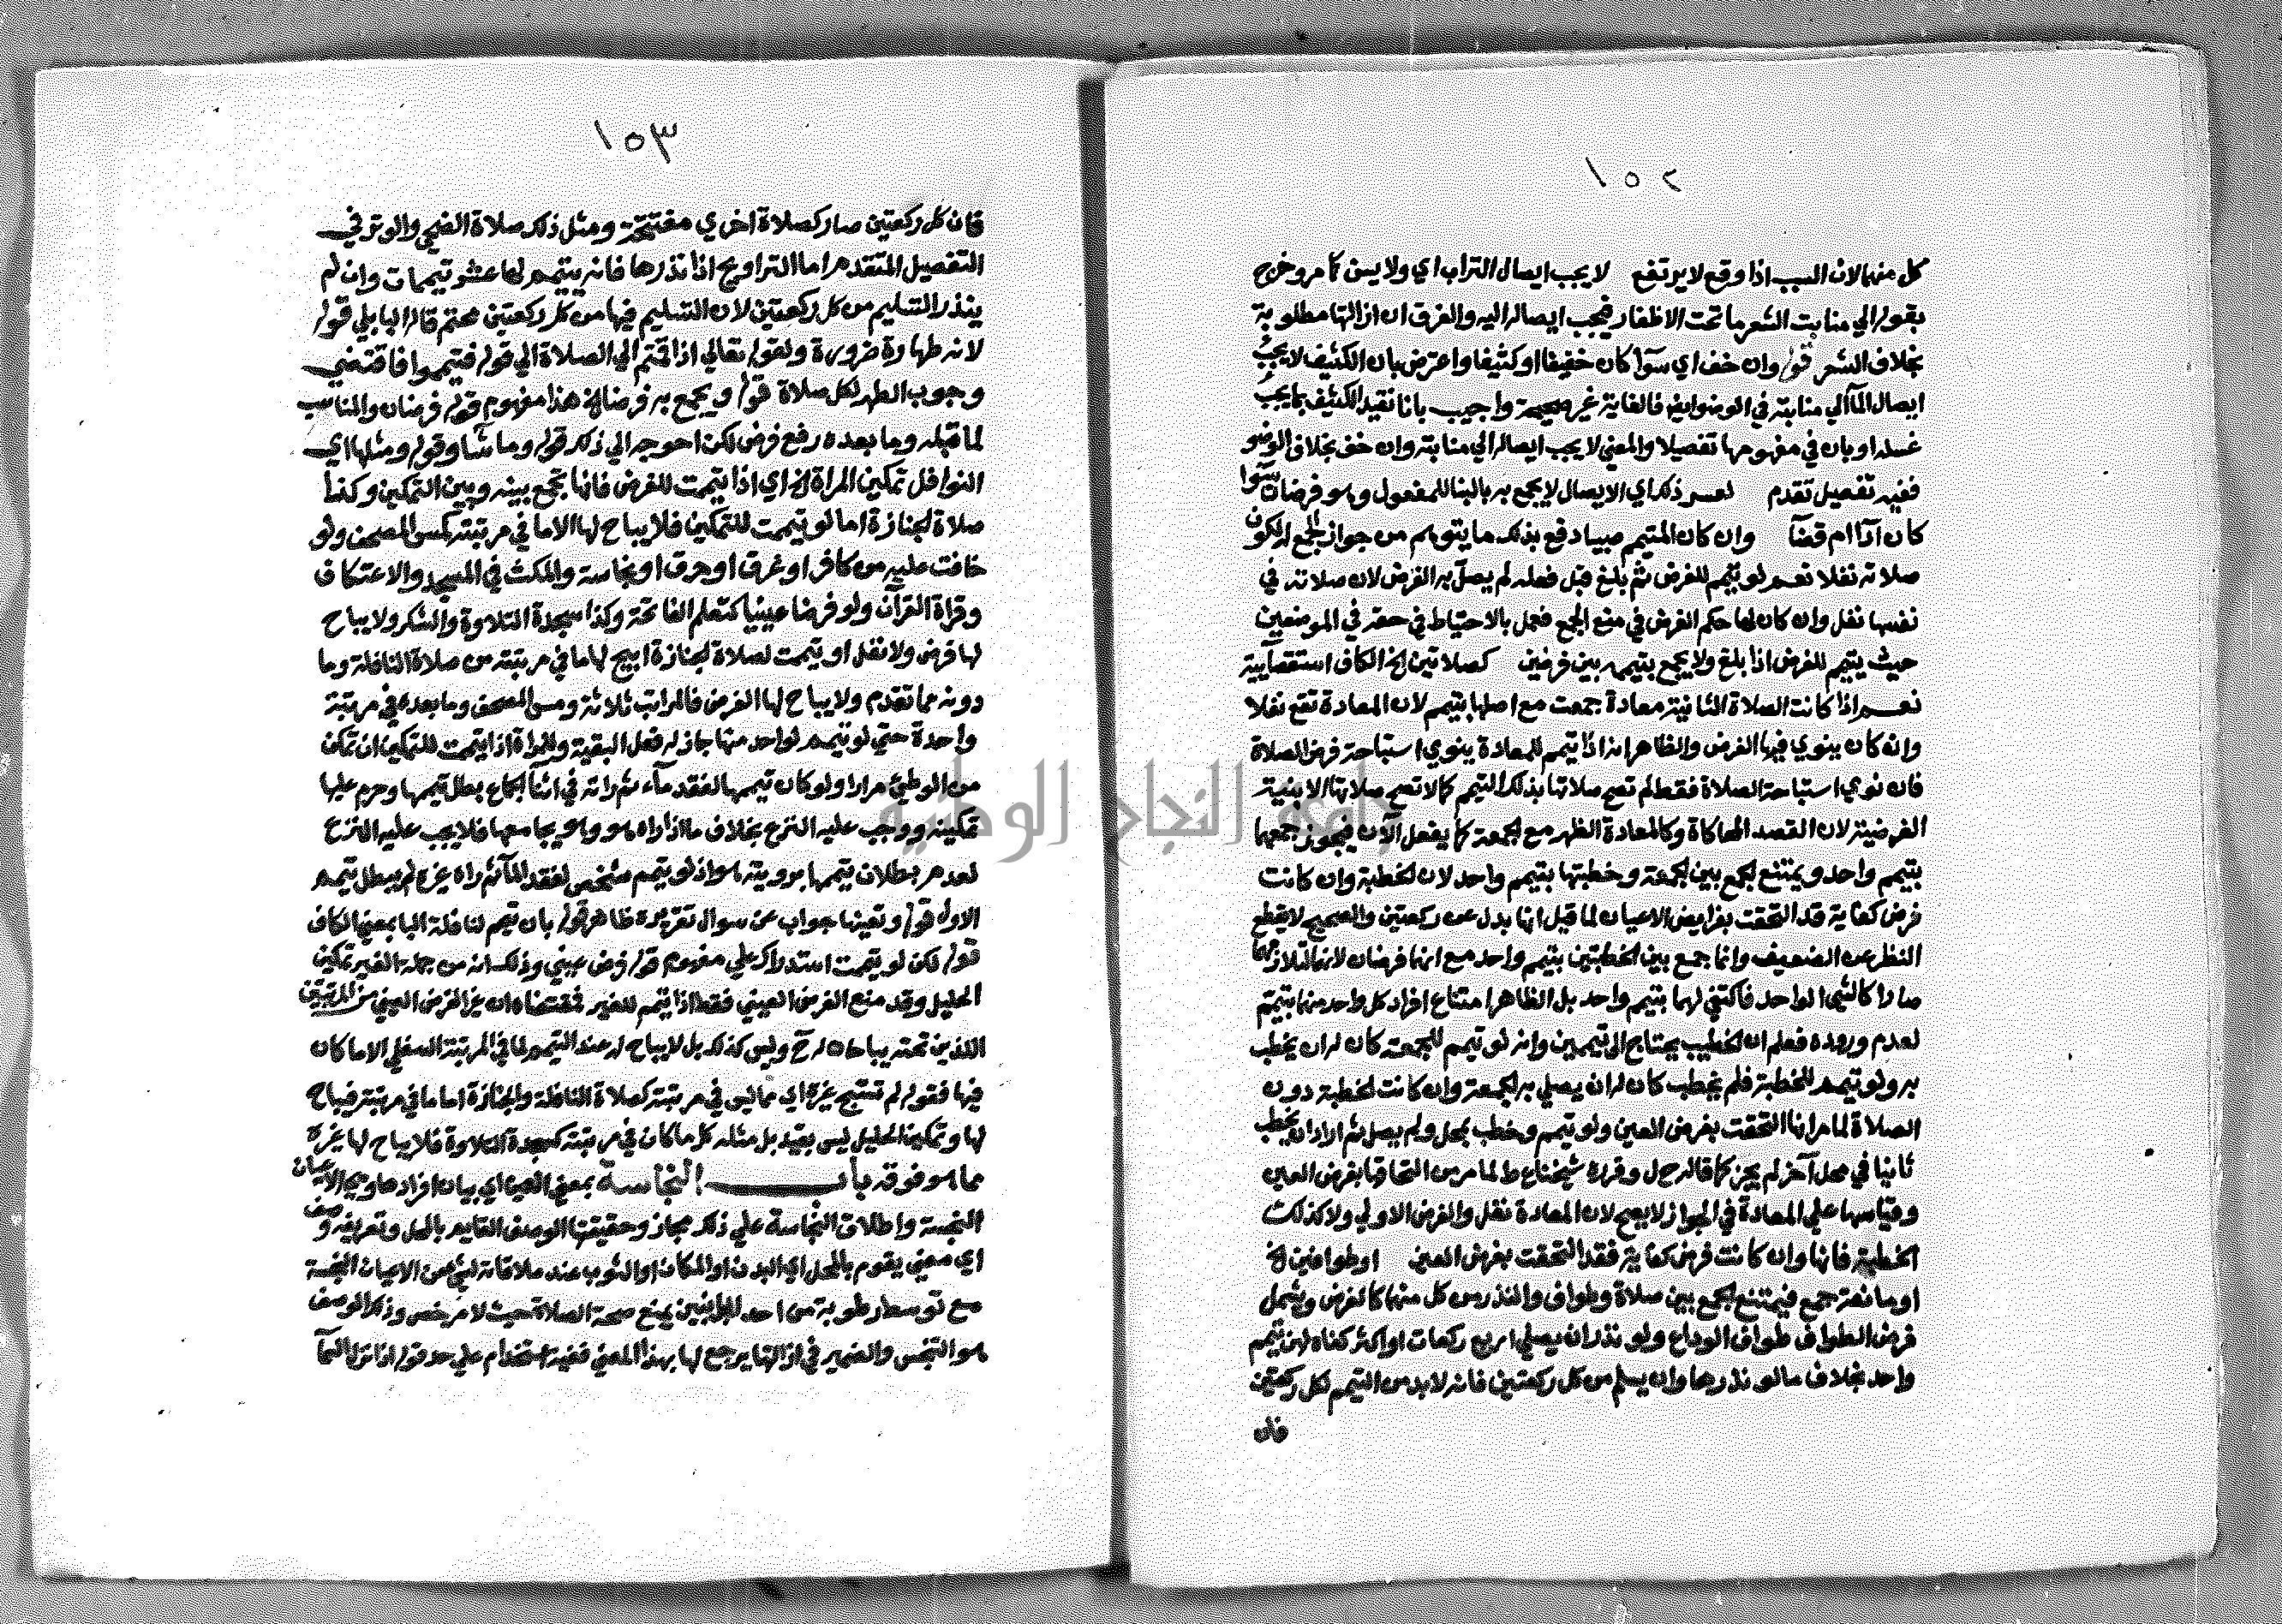 ١٥٢
كل منهما لان السبب اذا وقع لا يرتفع لا يجب ايصال التراب اي ولا يسن كما مر وخرج
بقوله الي منابت الشعر ما تحت الاظفار فيجب ايصاله اليه والفرق ان ازالتها مطلوبة
بخلاف الشعر قوله وان خف اي سوآ كان خفيفا او كثيفا واعترض بان الكثيف لا يجب
ايصال المآ الي منابته في الوضو ايضا فالغاية غير صحيحة واجيب بانا نقيد الكثيف بما يجب
غسله او بان في مفهومها تفصيلا والمعني لا يجب ايصاله الي منابته وان خف بخلاف الوضو
ففيه تفصيل تقدم لعسر ذلك اي الايصال لا يجمع به بالبنا للمفعول وهو فرضان سوآ
كان ادآ ام قضآ وان كان المتيمم صبيا دفع بذلك ما يتوهم من جواز الجمع له لكون
صلاته نفلا نعم لو تيمم للفرض ثم بلغ قبل فعله لم يصل به الفرض لان صلاته في
نفسها نفل وان كان لها حكم الفرض في منع الجمع فعمل بالاحتياط في حقه في الموضعين
حيث يتيمم للفرض اذا بلغ ولا يجمع بتيممه بين فرضين كصلاتين الخ الكاف استقصآيية
نعم اذا كانت الصلاة الثانية معادة جمعت مع اصلها بتيمم لان المعادة تقع نفلا
وانه كان ينوي فيها الفرض والظاهر انه اذا تيمم للمعادة ينوي استباحة فرض الصلاة
فان نوي استباحة الصلاة فقط لم تصح صلاتها بذلك التيمم كما لا تصح صلاتها الا بنية
الفرضية لان القصد المحاكاة وكالمعادة الظهر مع الجمعة كما يفعل الآن فيجوز جمعها
بتيمم واحد ويمتنع الجمع بين الجمعة وخطبتها بتيمم واحد لان الخطبة وان كانت
فرض كفاية قد التحقت بفرايض الاعيان لما قيل انها بدل عن ركعتين والصحيح لا يقطع
النظر عن الضعيف وانما جمع بين الخطبتين بتيمم واحد مع انهما فرضان لانهما لتلازمهما
صارا كالشي الواحد فاكتفي لهما بتيمم واحد بل الظاهر امتناع افراد كل واحد منهما بتيمم
لعدم وروده فعلم ان الخطيب يحتاج الي تيممين وانه لو تيمم للجمعة كان له ان يخطب
به ولو تيمم للخطبة فلم يخطب كان له ان يصلي به الجمعة وان كانت الخطبة دون
الصلاة لما مر انها التحقت بفرض العين ولو تيمم وخطب بمحل ولم يصل ثم اراد ان يخطب
ثانيا في محل آخر لم يجز كما قاله ح ل وقرره شيخنا ع ط لما مر من التحاقها بفرض العين
وقياسها علي المعادة في الجواز لا يصح لان المعادة نفل والفرض الاولي ولا كذلك
الخطبة فانها وان كانت فرض كفاية فقد التحقت بفرض العين او طوافين الخ
او مانعة جمع فيمتنع الجمع بين صلاة وطواف والنذر من كل منهما كالفرض ويشمل
فرض الطواف طواف الوداع ولو نذر ان يصلي اربع ركعات او اكثر كفاه لهن تيمم
واحد بخلاف ما لو نذرها وان يسلم من كل ركعتين فانه لا بد من التيمم لكل ركعتين
فان
١٥٣
فان كل ركعتين صار كصلاة اخري مفتتحة ومثل ذلك صلاة الضحي والوتر في
التفصيل المتقدم اما التراويح اذا نذرها فانه يتيمم لها عشر تيممات وان لم
ينذر التسليم من كل ركعتين لان التسليم فيها من كل ركعتين محتم قاله البابلي قوله
لانه طهارة ضرورة ولقوله تعالي اذا قمتم الي الصلاة الي قوله فتيمموا فاقتضي
وجوب الطهر لكل صلاة قوله ويجمع به فرضا الخ هذا مفهوم قوله فرضان والمناسب
لما قبله وما بعده رفع فرض لكن احوجه الي ذلك قوله وما شا وقوله ومثلها اي
النوافل تمكين المراة الخ اي اذا تيممت للفرض فانها تجمع بينه وبين التمكين وكذا
صلاة الجنازة اما لو تيممت للتمكين فلا يباح لها الا ما في مرتبته كمس المصحف ولو
خافت عليه من كافر او غرق او حرق او نجاسة والمكث في المسجد والاعتكاف
وقراة القرآن ولو فرضا عينيا كتعلم الفاتحة وكذا سجدة التلاوة والشكر ولا يباح
لها فرض ولا نفل او تيممت لصلاة الجنازة ابيح لها ما في مرتبته من صلاة النافلة وما
دونه مما تقدم ولا يباح لها الفرض فالمراتب ثلاثة ومس المصحف وما بعده في مرتبة
واحدة حتي لو تيمم لواحد منها جاز له فعل البقية وللمراة اذا تيممت للتمكين ان تمكن
من الوطئ مرارا ولو كان تيممها لفقد مآء ثم راته في اثنآ الجماع بطل تيممها وحرم عليها
تمكينه ووجب عليه النزع بخلاف ما اذا راه هو وهو يجامعها فلا يجب عليه النزع
لعدم بطلان تيممها برويته هو اذ لو تيمم شخص لفقد المآ ثم راه غيره لم يبطل تيمم
الاول قوله وتعينها جواب عن سوال تقريره ظاهر قوله بان تيمم لنافلة البا بمعني الكاف
قوله لكن لو تيممت استدراك علي مفهوم قوله فرض عيني وذلك انه من جملة الغير تمكين
الحليل وقد منع الفرض العيني فقط اذا تيمم للغير فمقتضاه ان غير الفرض العيني من المرتبتين
اللذين تحته يباحان له ح وليس كذلك بل لا يباح له عند التيمم لما في المرتبة السفلي الا ما كان
فيها فقوله لم تستبح غيره اي مما ليس في مرتبته كصلاة النافلة والجنازة اما ما في مرتبته فيباح
لها وتمكين الحليل ليس بقيد بل مثله كل ما كان في مرتبته كسجدة التلاوة فلا يباح لها غيره
مما هو فوقه باب النجاسة بمعني العين اي بيان افرادها وهي الاعيان
النجسة واطلاق النجاسة علي ذلك مجاز وحقيقتها الوصف القايم بالمحل وتعريفه وصف
اي معني يقوم بالمحل اي البدن او المكان او الثوب عند ملاقاته لشي من الاعيان النجسة
مع توسط رطوبة من احد الجانبين يمنع صحة الصلاة حيث لا مرخص وذلك الوصف
هو التنجس والضمير في ازالتها يرجع لها بهذا المعني ففيه استخدام علي حد قوله اذا نزل السمآ
جامعة النجاح الوطنية